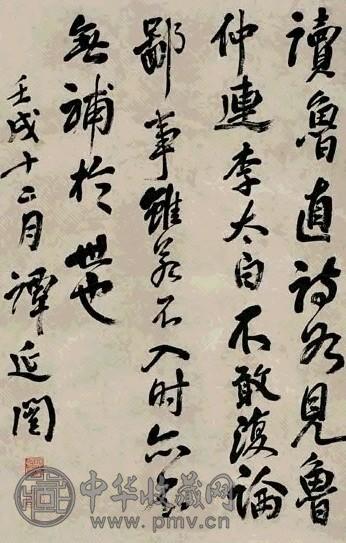 讀魯直詩如見魯
仲連李太白不敢復論
鄙事雖若不入时亦不
無補於世也
壬戌十二月 譚延闓
中华收藏网
www.pmv.cn